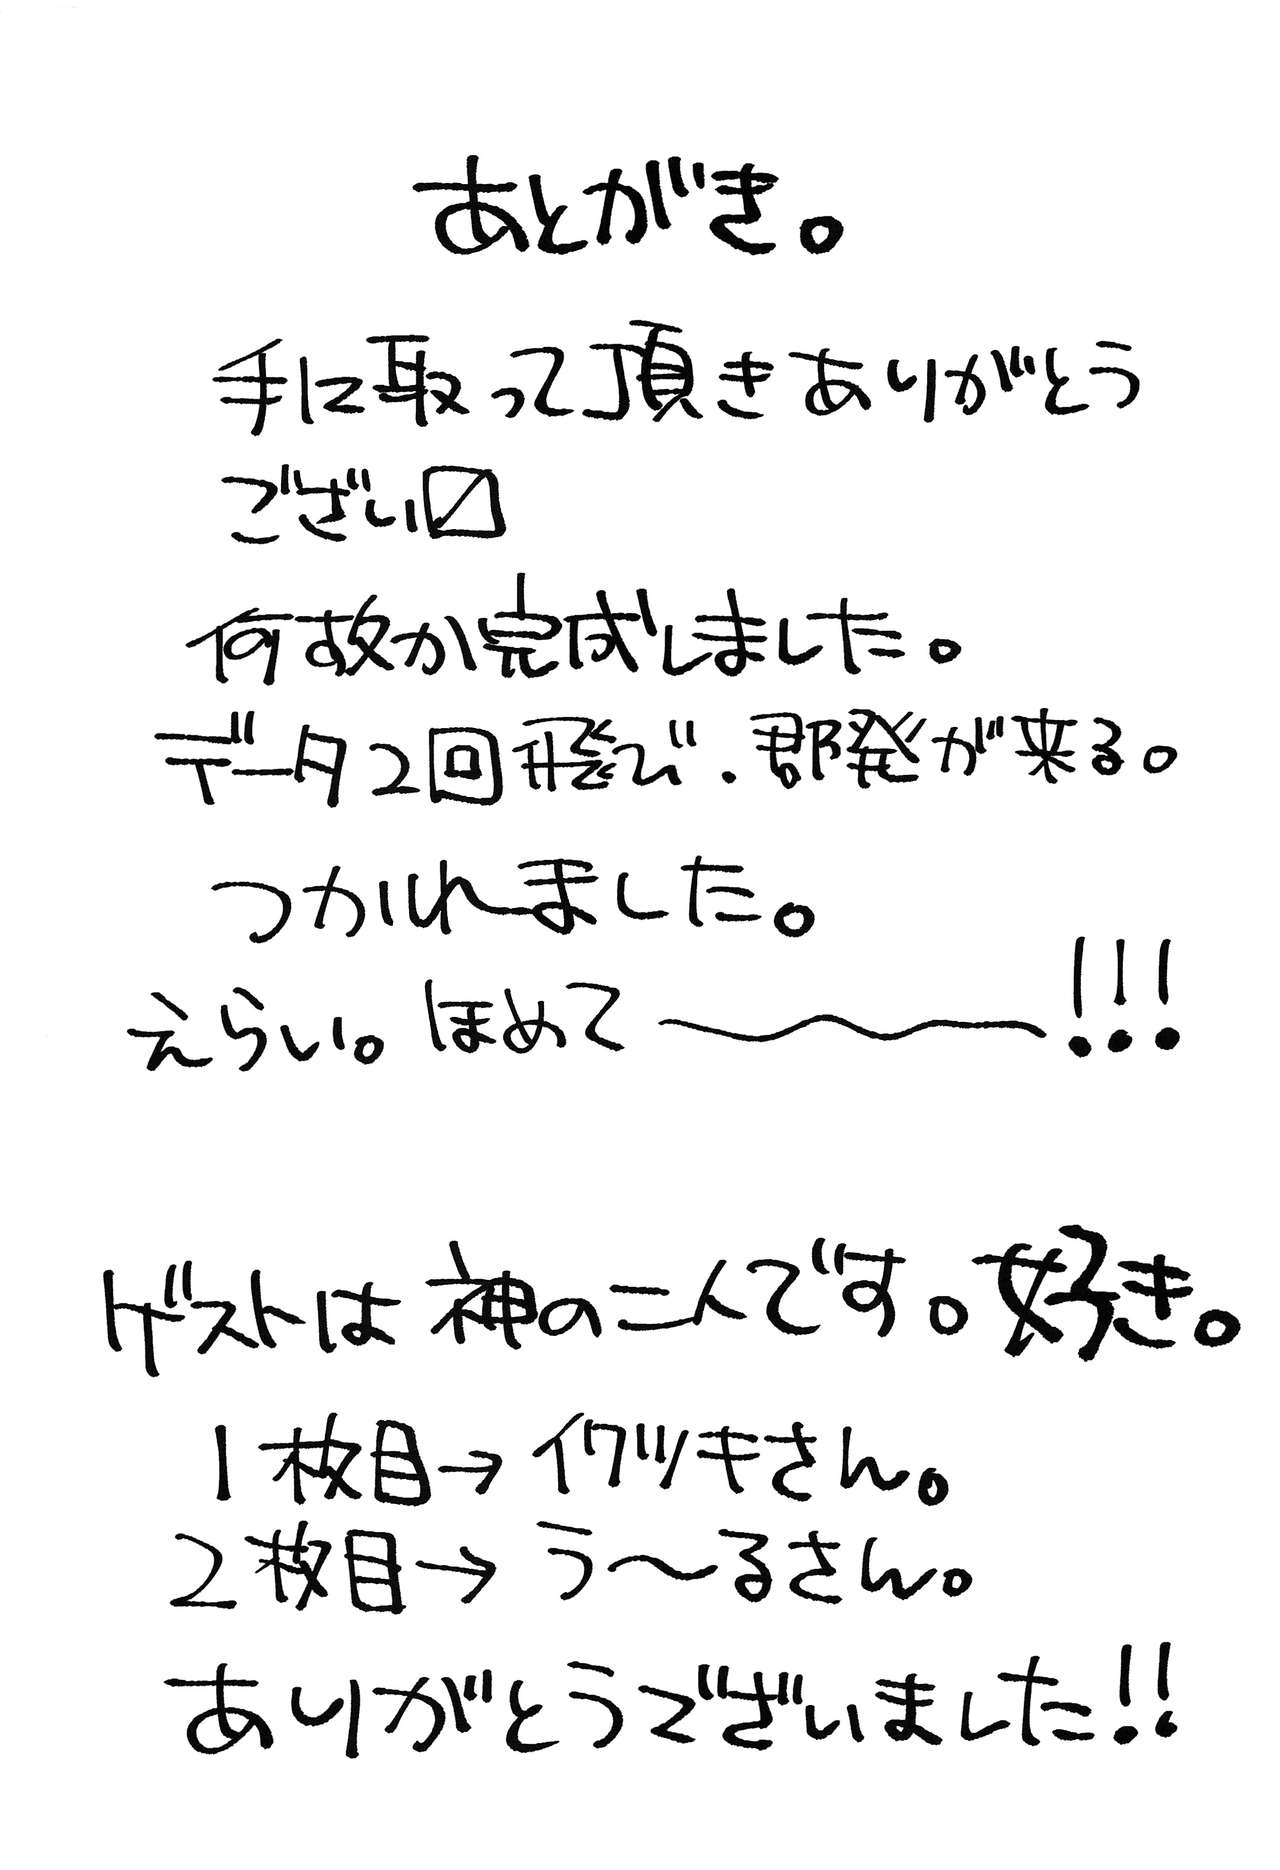 あとがき。
手に取って頂きありがとう
ござい〼
何故か完成しました。
データ2回飛び.群発が来る。
つかれました。
えらい。ほめて〜〜!!!
ゲストは神の二人です。好き。
1枚目→イワツキさん。
2枚目→う〜るさん。
ありがとうございました!!